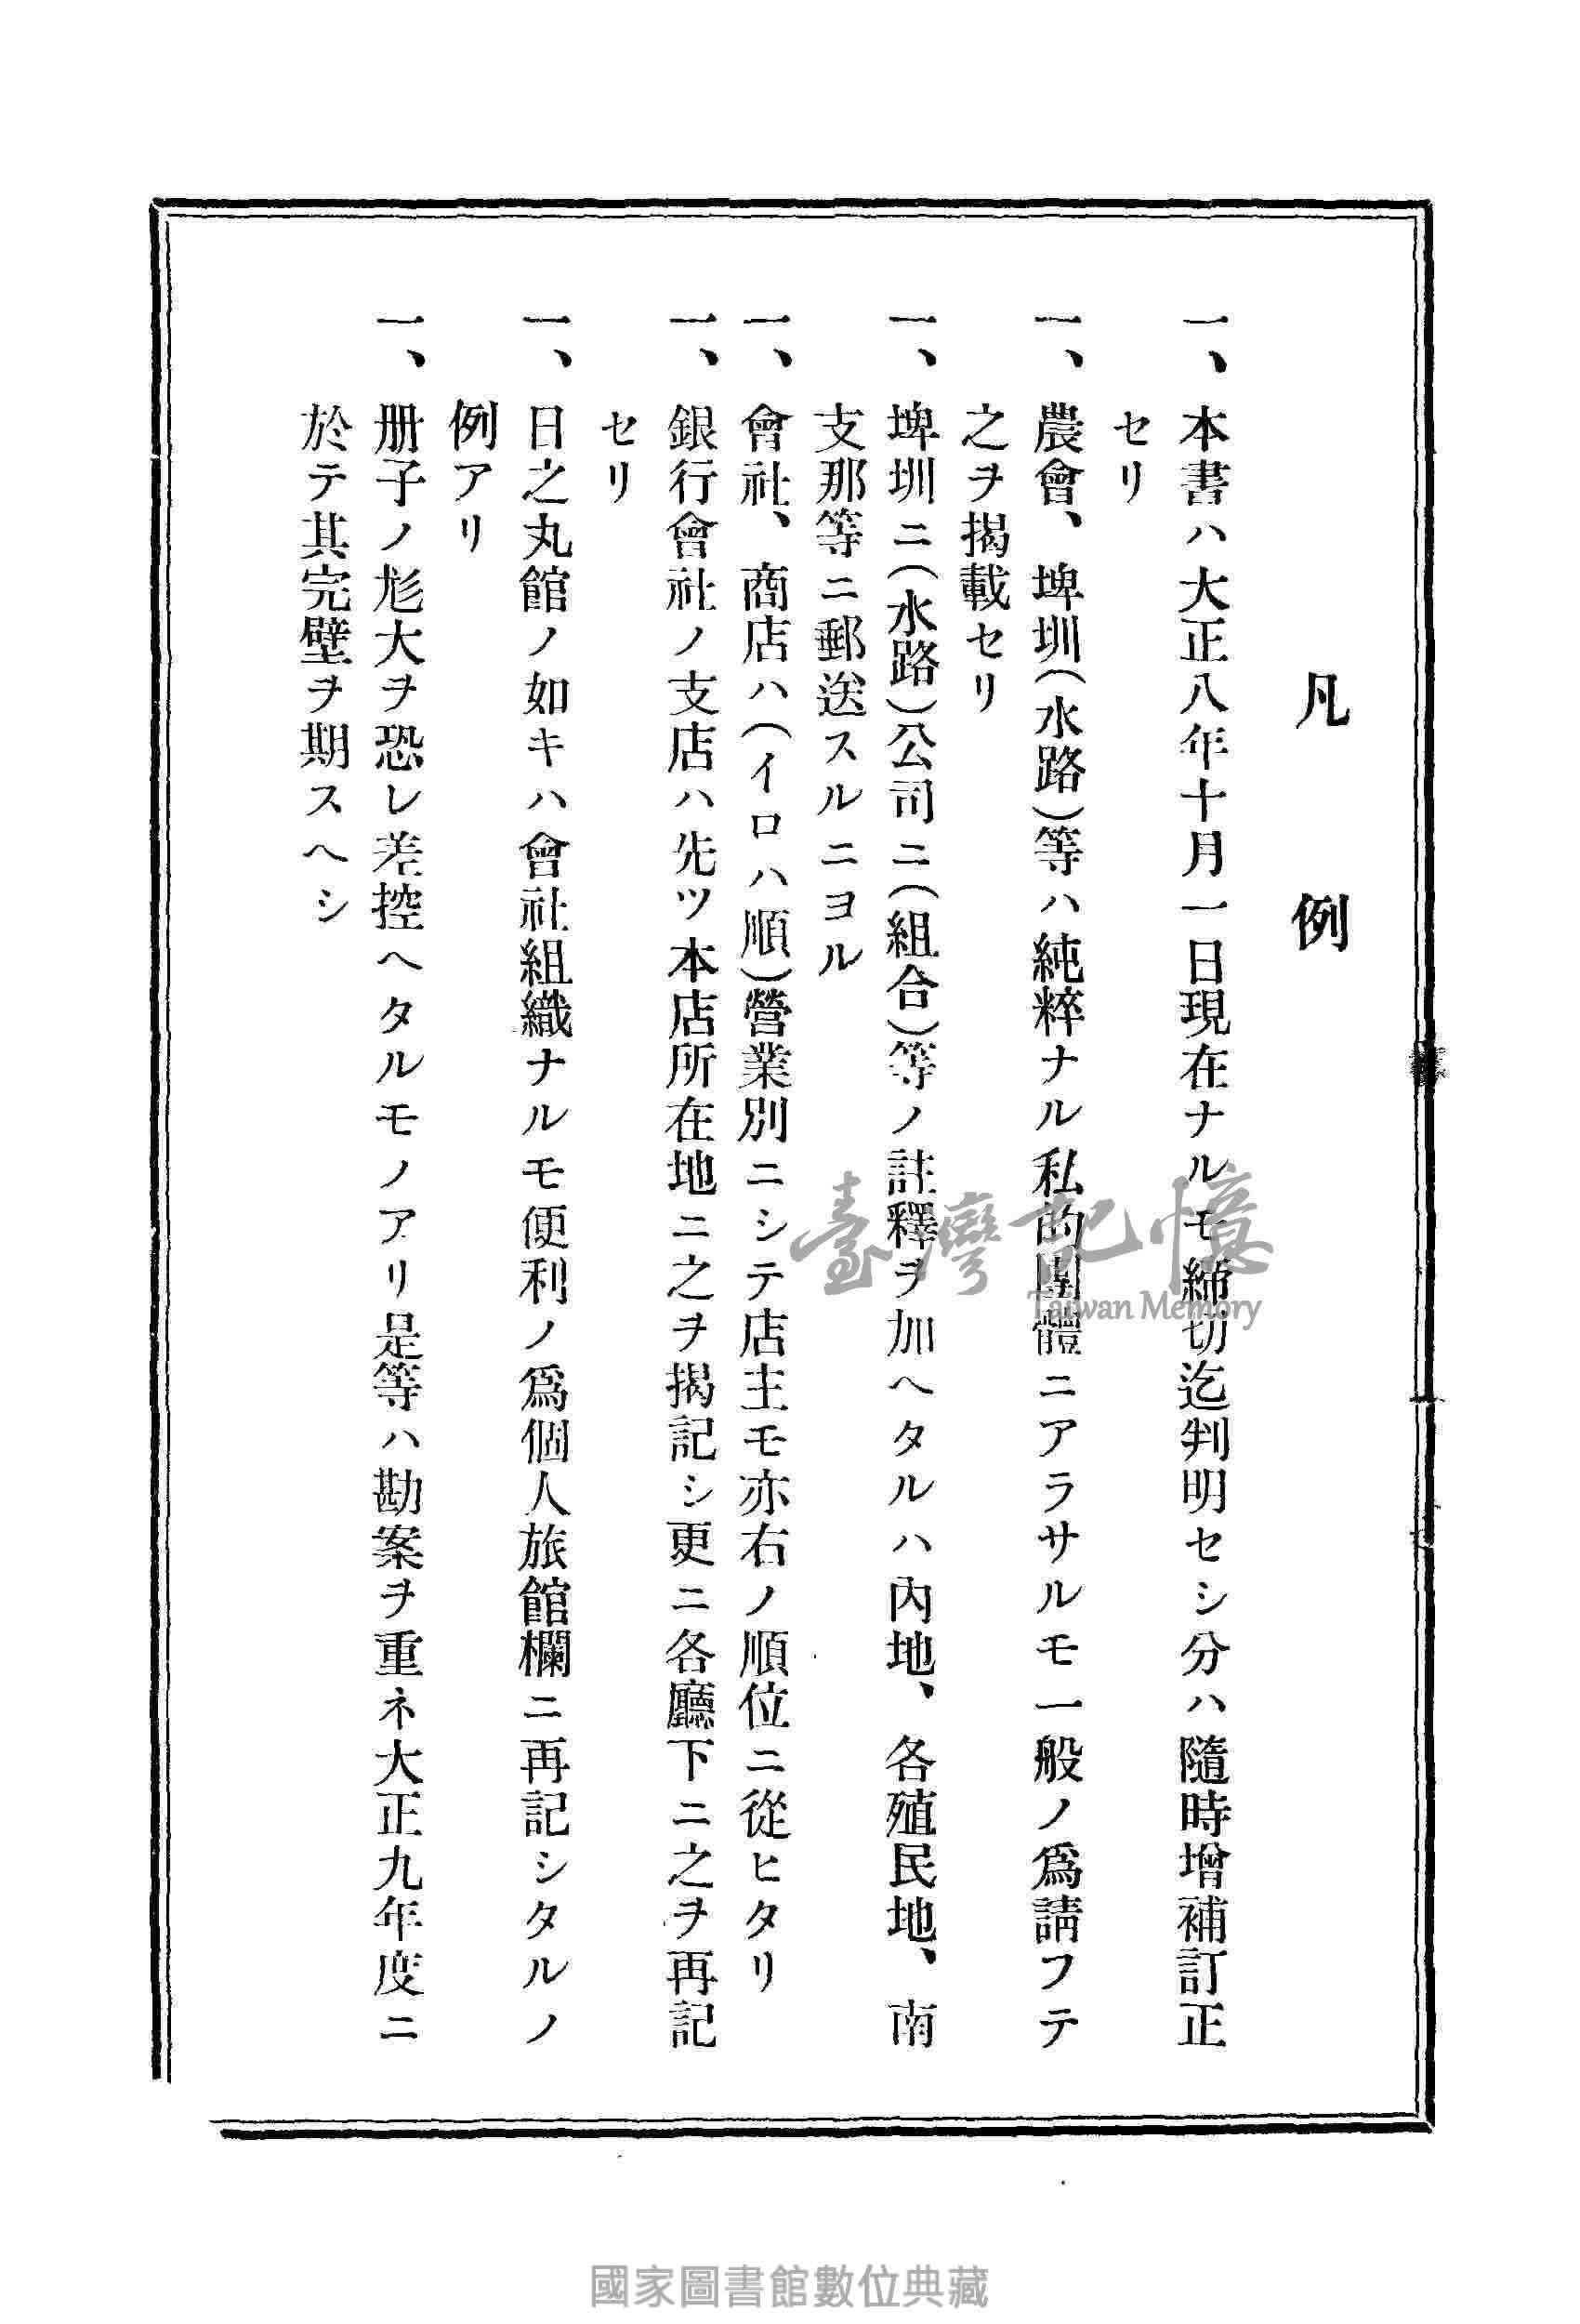 凡例
一、本書ハ大正八年十月一日現在ナルモ締切迄判明セシ分ハ隨時增補訂正
セリ
一、農會、埤圳(水路)等ハ純粹ナル私的團體ニアラサルモ一般ノ爲請フテ
之ヲ揭載セリ
一、埤圳ニ(水路)公司ニ(組合)等ノ註釋ヲ加ヘタルハ內地、各殖民地、南
支那等ニ郵送スルニヨル
一、會社、商店ハ(イロハ順)營業別ニシテ店主モ亦右ノ順位ニ從ヒタリ
一、銀行會社ノ支店ハ先ツ本店所在地ニ之ヲ揭記シ更ニ各廳下ニ之ヲ再記
セリ
一、日之丸館ノ如キハ會社組織ナルモ便利ノ爲個人旅館欄ニ再記シタルノ
例アリ
一、册子ノ尨大ヲ恐レ差控ヘタルモノアリ是等ハ勘案ヲ重ネ大正九年度ニ
於テ其完壁ヲ期スヘシ
臺灣記憶
Taiwan Memory
國家圖書館數位典藏